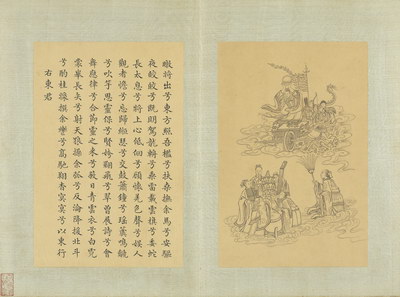 暾將出兮東方照吾檻兮扶桑撫余馬兮安驅
夜皎皎兮既明駕龍輈兮乘雷載雲旗兮委蛇
長太息兮將上心低佪兮顧懷羌色聲兮娛人
觀者憺兮忘歸緪瑟兮交鼓簫鐘兮瑤簴鳴䶵
兮吹竽思靈保兮賢姱翾飛兮翠曾展詩兮會
舞應律兮合節靈之來兮蔽日青雲衣兮白霓
裳舉長矢兮射天狼操余弧兮反淪降援北斗
兮酌桂漿撰余轡兮高馳翔杳冥冥兮以東行
右東君